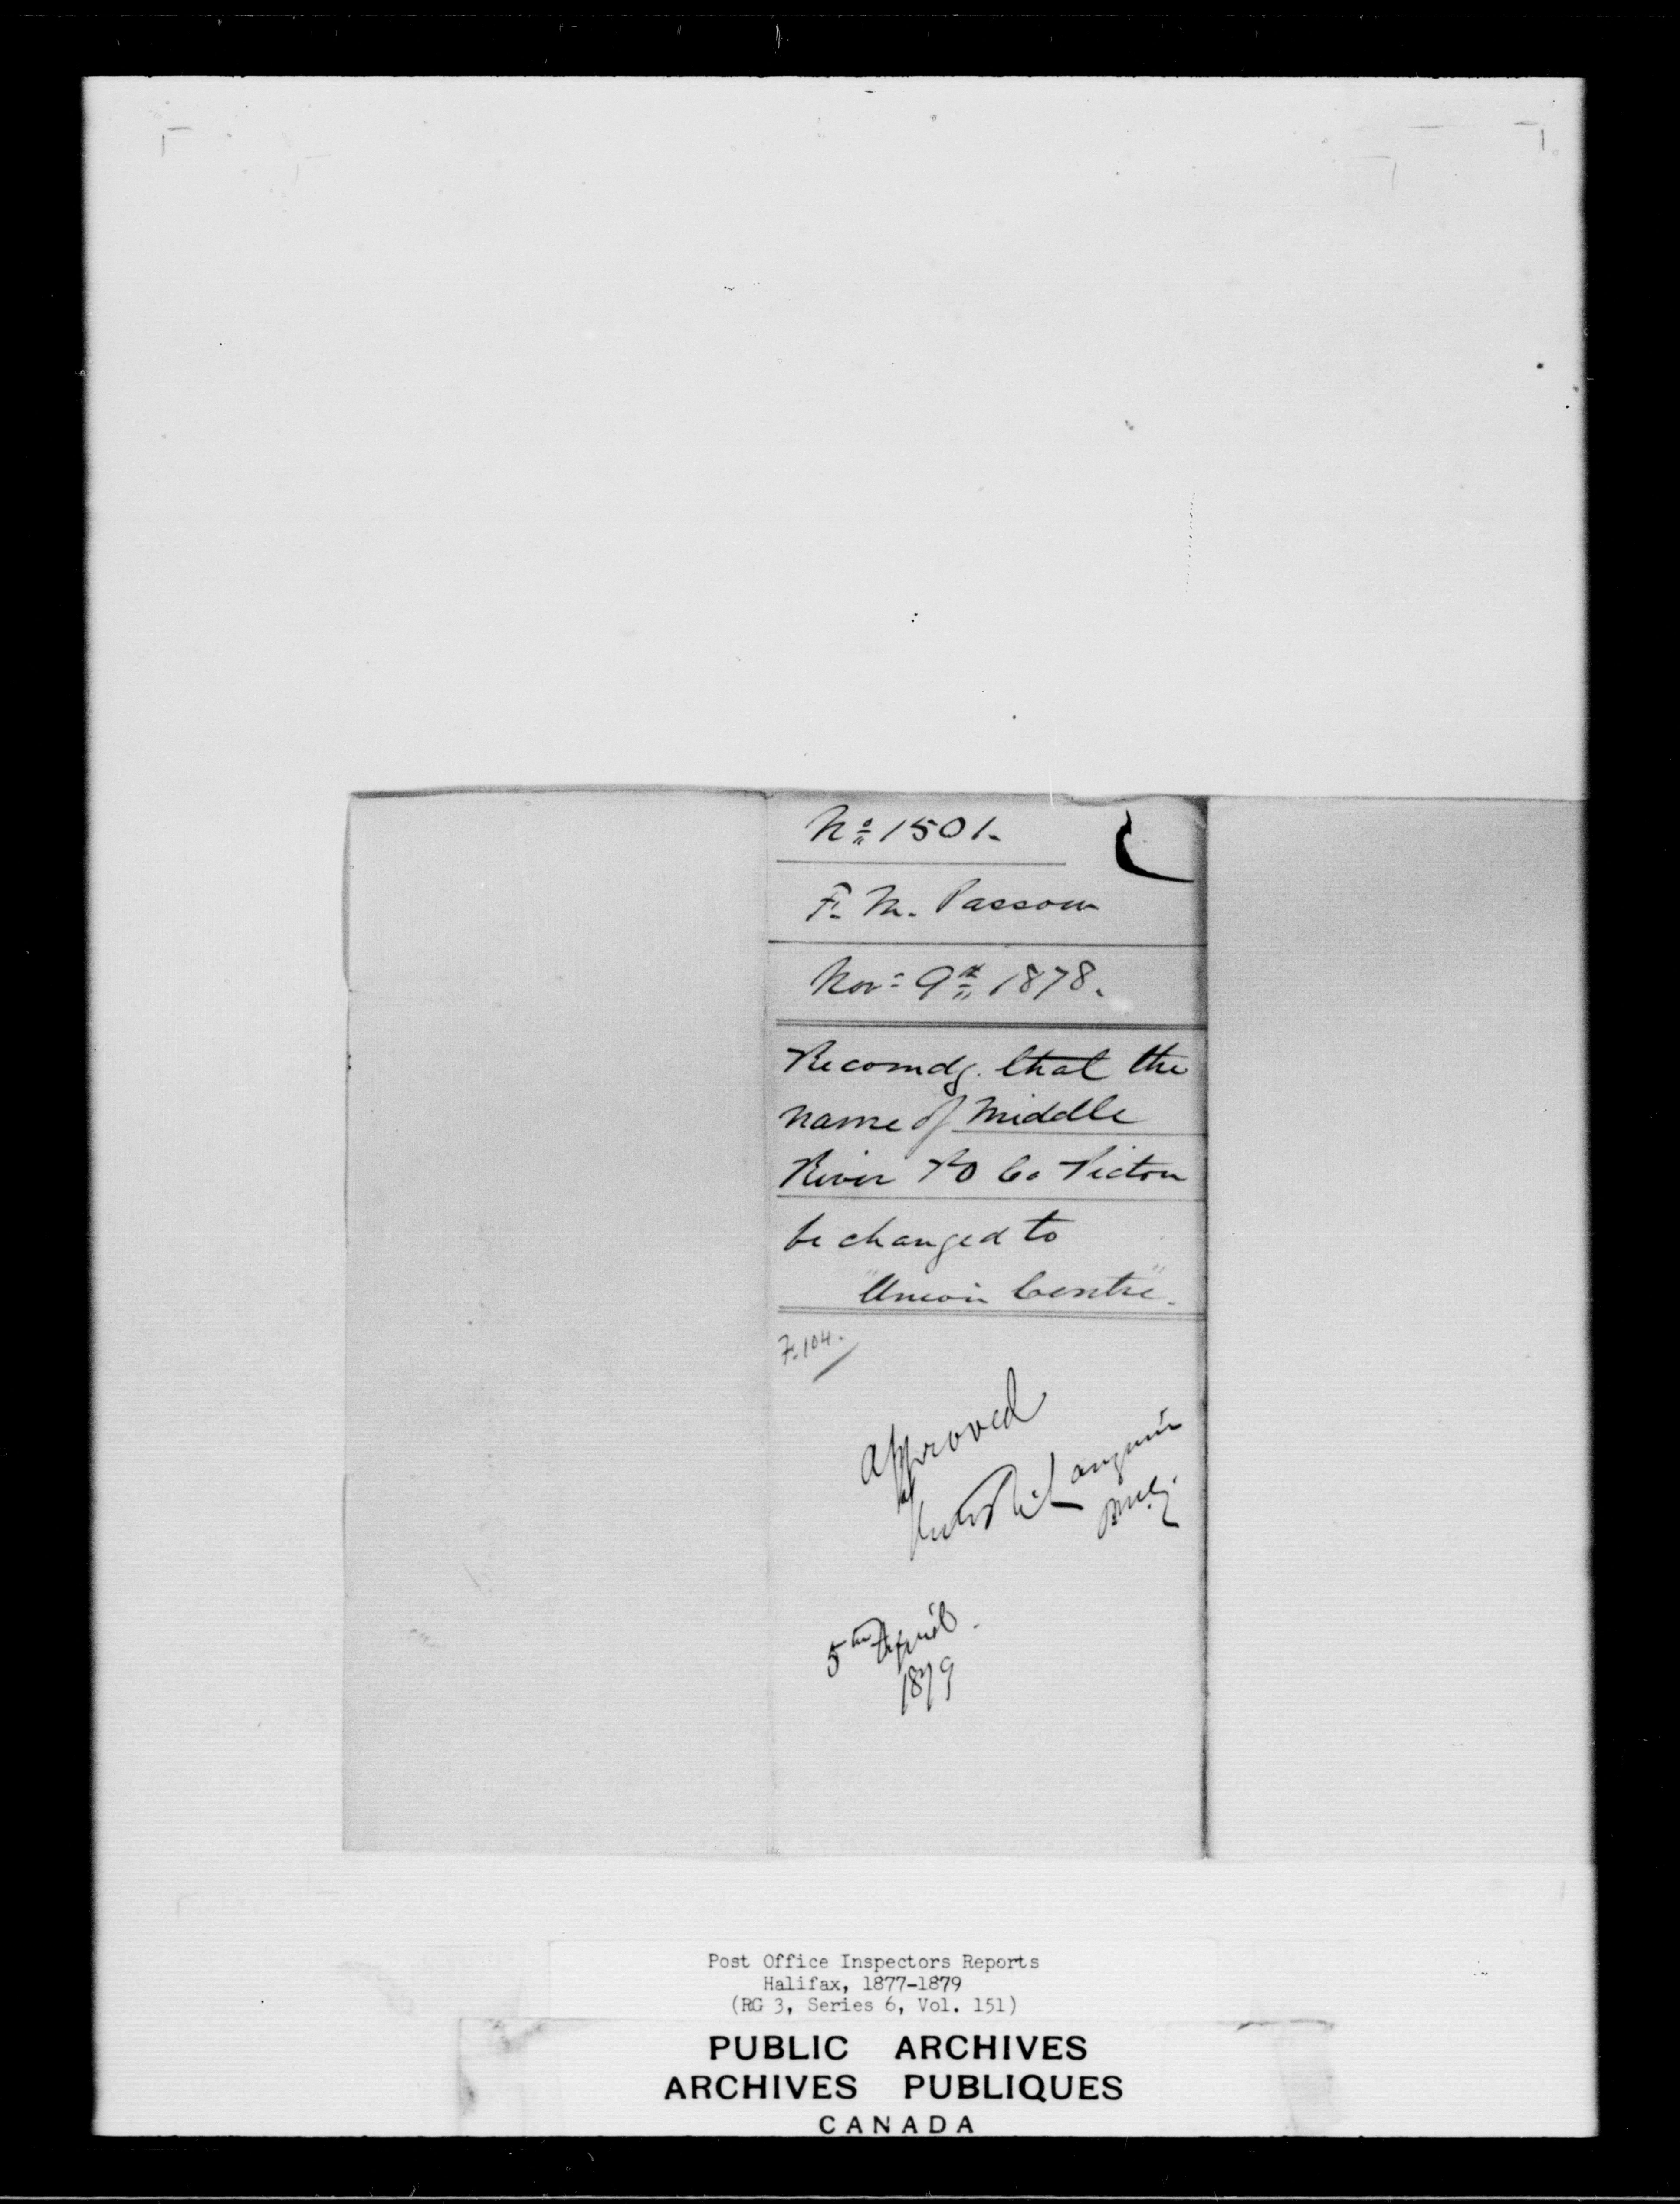 No 1501.
F. M. Passow
Nov: 9th 1878.
Recomdg. that the
name of Middle
River PO Co Pictou
be changed to
"Union Centre".
F.104.
Approved
Langevin
PMG.
5th April.
1879
Post Office Inspectors Reports
Halifax, 1877-1879
(RG 3, Series 6, Vol. 151)
PUBLIC ARCHIVES
ARCHIVES PUBLIQUES
CANADA